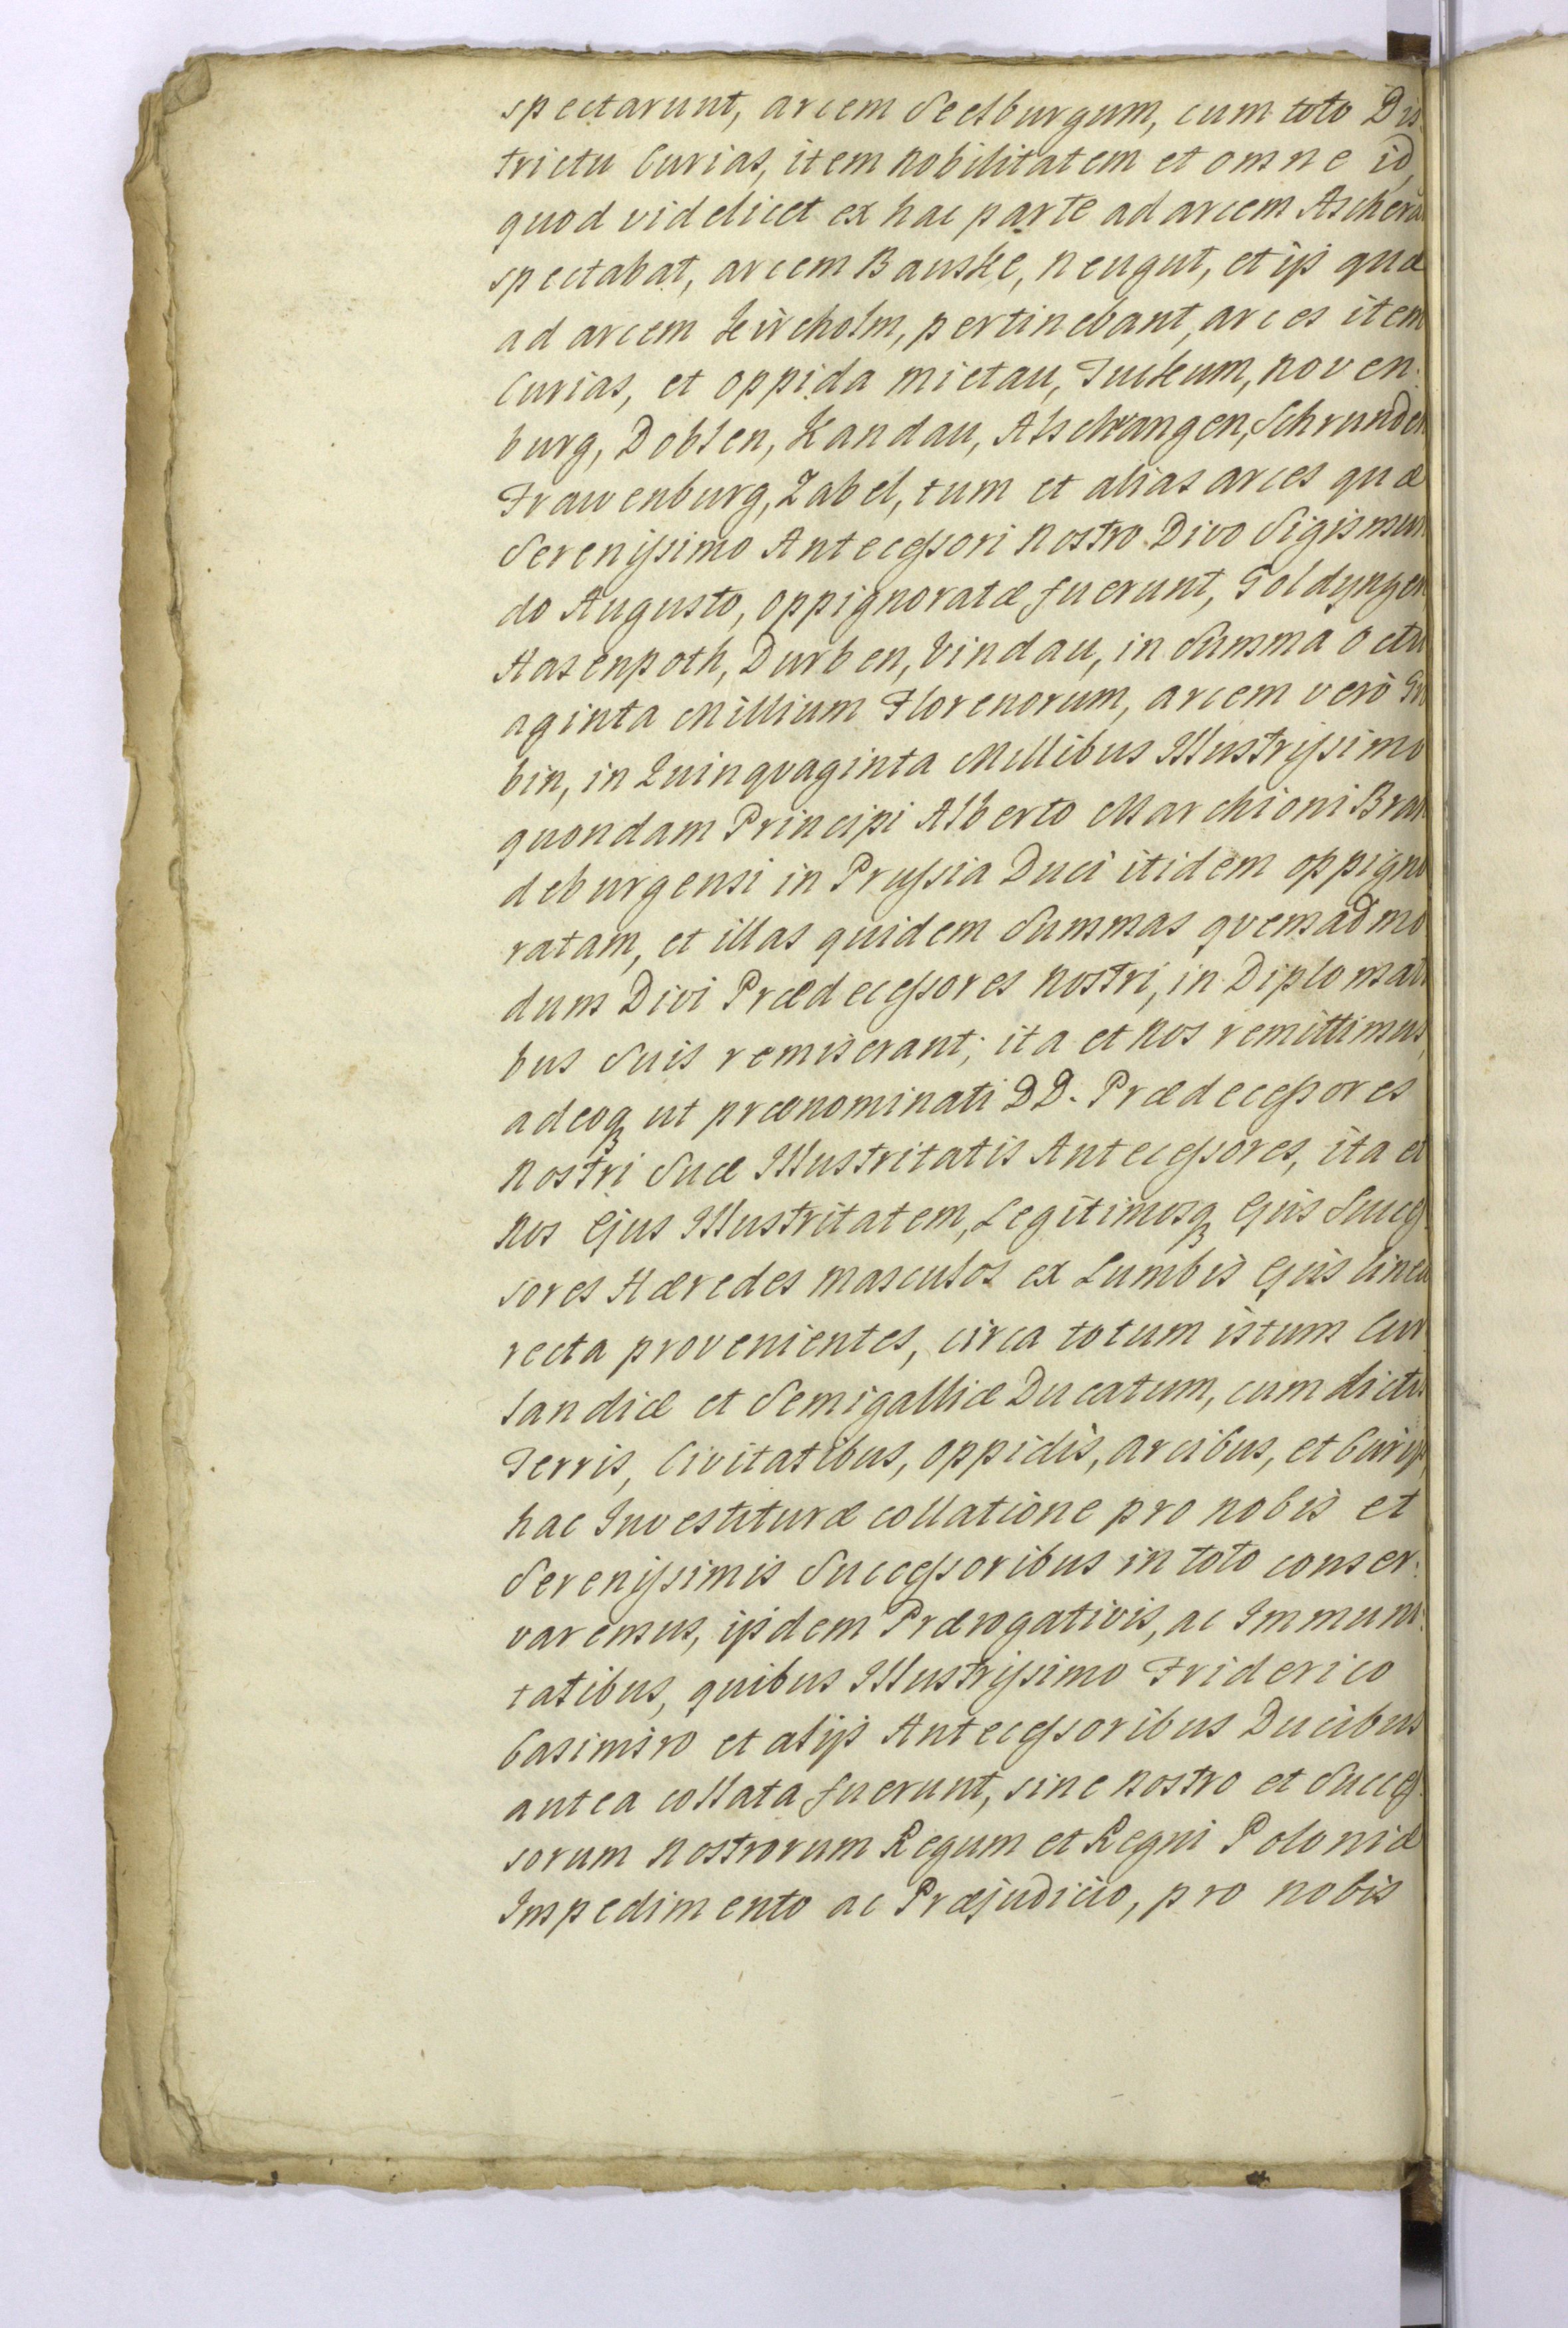 spectarunt, arcem Seelburgum, cum toto Dis
trictu Curias, item Nobilitatem et omne id,
quod videlicet ex hac parte ad arcem Aschera
spectabat, arcem Bauske, Neugut, et ijs quæ
ad arcem Kircholm, pertinebant, arces item
Curias, et oppida Mietau, Tuckum, Noven-
burg, Doblen, Kandau, Alschwangen, Schrunden
Frauenburg, Zabel, tum et alias arces quæ
Serenissimo Antecessori Nostro Divo Sigismun
do Augusto, oppignoratæ fuerunt, Goldyngen
Hasenpoth, Durben, Vindau, in Summa octu
aginta Millium Florenorum, arcem verò Gro
bin, in Quinquaginta Millibus Illustrissimo
quondam Principi Alberto Marchioni Bran
deburgensi in Prussia Duci itidem oppigno
ratam, et illas quidem Summas quemadmo
dum Divi Prædecessores Nostri, in Diplomati
bus Suis remiserant; ita et Nos remittimus,
adeoq ut prænominati DD. Prædecessores
Nostri Suæ Illustritatis Antecessores, ita et
Nos Ejus Illustritatem, Legitimosq Ejus Succes
sores Hæredes masculos ex Lumbis Ejus linea
recta provenientes, circa totum istum Cur
landiæ et Semigalliæ Ducatum, cum dictis
Terris, Civitatibus, oppidis, arcibus, et Curijs
hac Investituræ collatione pro nobis et
Serenissimis Successoribus in toto conser-
varemus, ijsdem Prærogativis, ac Immuni-
tatibus, quibus Illustrissimo Friderico
Casimiro et alijs Antecessoribus Ducibus
antea collata fuerunt, sine Nostro et Succes
sorum Nostrorum Regum et Regni Poloniæ
Impedimento ac Præjudicio, pro nobis